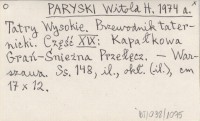 PARYSKI Witold H. 1974 a.
Tatry Wysokie. Przewodnik tater-
nicki. Część XIX: Kapałkowa
Grań-Śnieżna Przełęcz. — War-
szawa. Ss. 148, il., okł. (il.), cm
17 x 12.